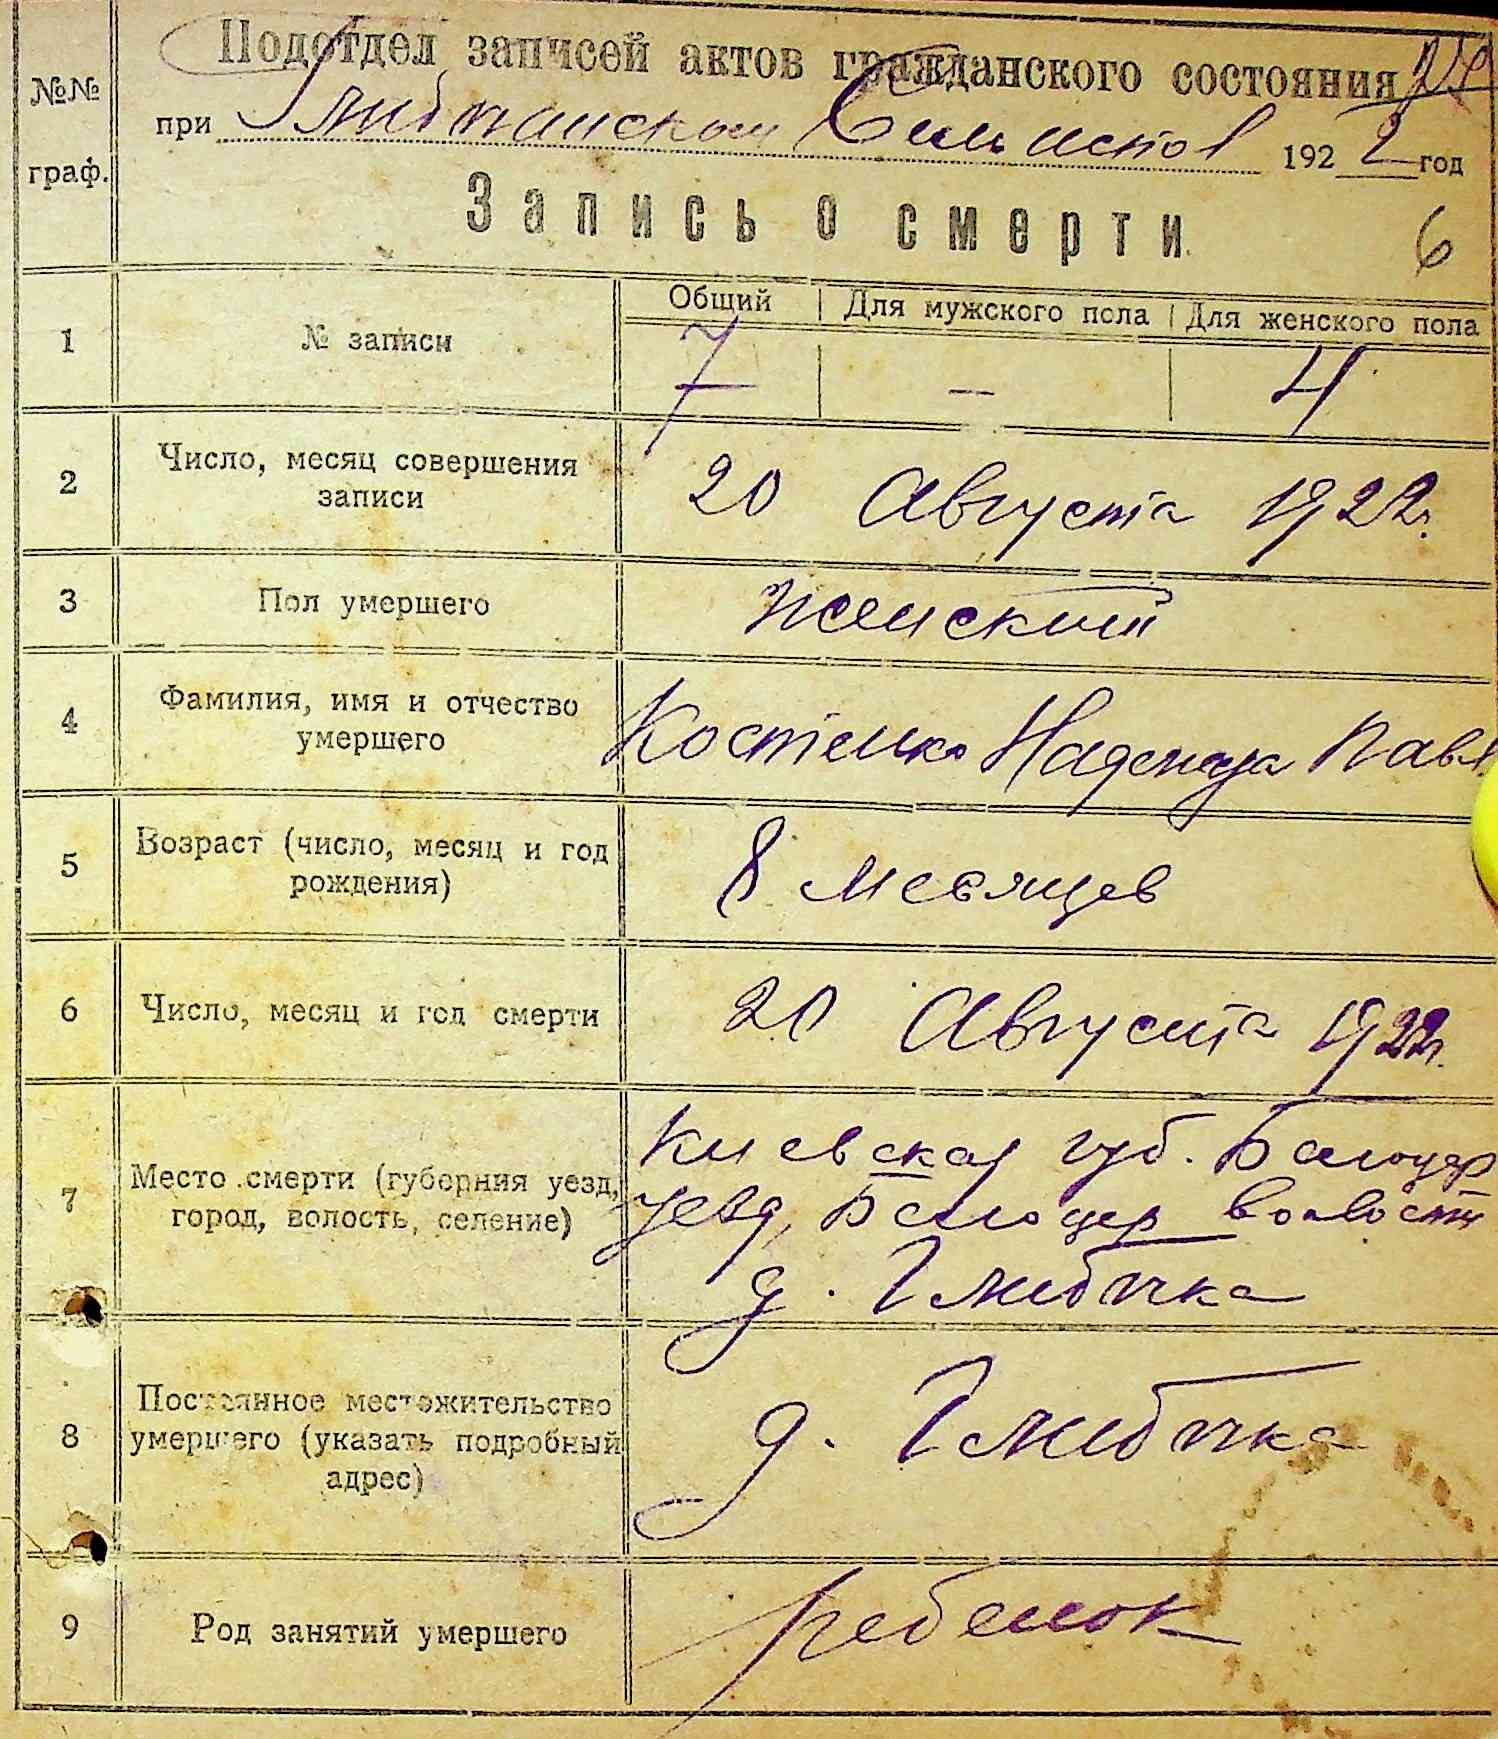 Подотдел записей актов гражданского состояния
№№ граф.
при Глибчанском Сельисков 1922 год
Запись о смерти
6
Общий Для мужского пола Для женского пола
1 № записи 7 — 4
2 Число, месяц совершения записи 20 Августа 1922г.
3 Пол умершего женский
4 Фамилия, имя и отчество умершего Костенко Надежда Павл
5 Возраст (число, месяц и год рождения) 8 месяцев
6 Число, месяц и год смерти 20 Августа 1922г.
7 Место смерти (губерния уезд, город, волость, селение) Киевская губ. Белоцер
уезд, Белоцер волости
д. Глибичка
8 Постоянное местожительство умершего (указать подробный адрес) д. Глибичка
9 Род занятий умершего ребенок